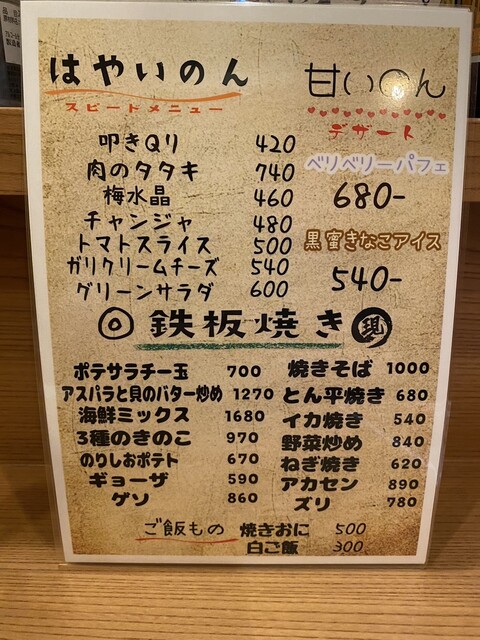 はやいのん
スピードメニュー
叩きQり 420
肉のタタキ 740
梅水晶 460
チャンジャ 480
トマトスライス 500
ガリクリームチーズ 540
グリーンサラダ 600
甘いのん
デザート
ベリベリーパフェ
680-
黒蜜きなこアイス
540-
鉄板焼き 現
ポテサラチー玉 700
アスパラと貝のバター炒め 1270
海鮮ミックス 1680
3種のきのこ 970
のりしおポテト 670
ギョーザ 590
ゲソ 860
焼きそば 1000
とん平焼き 680
イカ焼き 540
野菜炒め 840
ねぎ焼き 620
アカセン 890
ズリ 780
ご飯もの 焼きおに 500
白ご飯 300